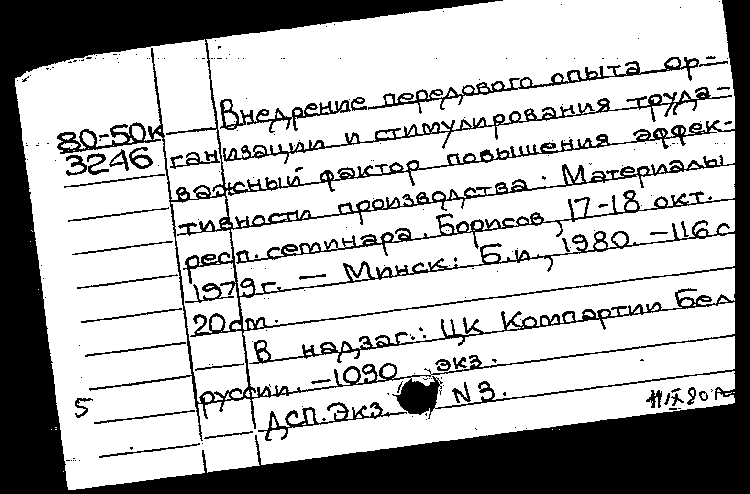 80-50к
3246
Внедрение передового опыта ор-
ганизации и стимулирования труда-
важный фактор повышения эффек-
тивности производства. Материалы
респ. семинара. Борисов, 17-18 окт.
1979г. — Минск: Б.и., 1980. -116с
20см.
В надзаг.: ЦК Компартии Бел
руссии. -1090 экз.
5
ДСП. Экз. N 3.